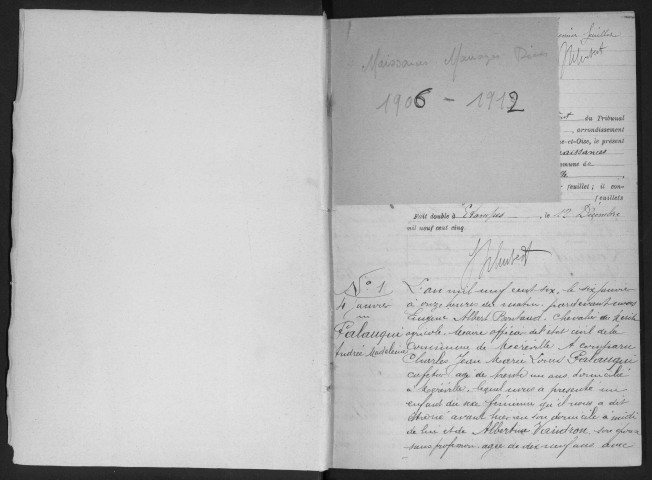 Naissances Mariages Décès
1906 - 1912
feuillet
du Tribunal
, arrondissement
-et-Oise, le présent
naissances
mmune de
feuillet ; il con-
feuillets
Fait double à Étampes, le Décembre
mil neuf cent cinq.
No 1
4 janvier
Palauqui
Andrée Madeleine
L'an mil neuf cent six, le six janvier
à onze heures du matin, pardevant nous
Eugène Albert Chevalier du Mérite
agricole, Maire officier de l'état civil de la
Commune de Méréville, A comparu
Charles Jean Marie Louis Palauqui
cafetier âgé de trente un ans domicilié
à Méréville, lequel nous a présenté un
enfant du sexe féminin qu'il nous a dit
être né avant hier en son domicile à midi
de lui et de Albertine Vaudron son épouse
sans profession âgée de dix neuf ans donc